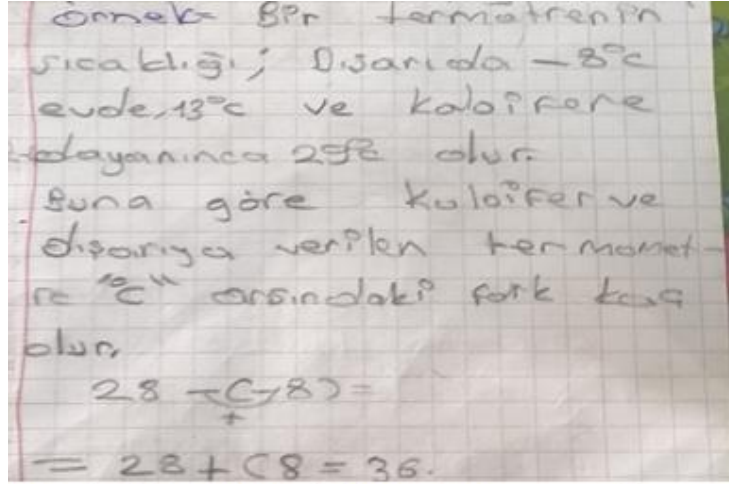 Örnek Bir termotrenin
sıcaklığı; Dışarıda -8°C
evde, 13°C ve kaloifere
dayanınca olur.
Buna göre Kuloifer ve
dışarıya verilen termomet-
re "°C" arsındaki fark kaç
olur.
28 -(-8)=
+
= 28+(8 = 36.